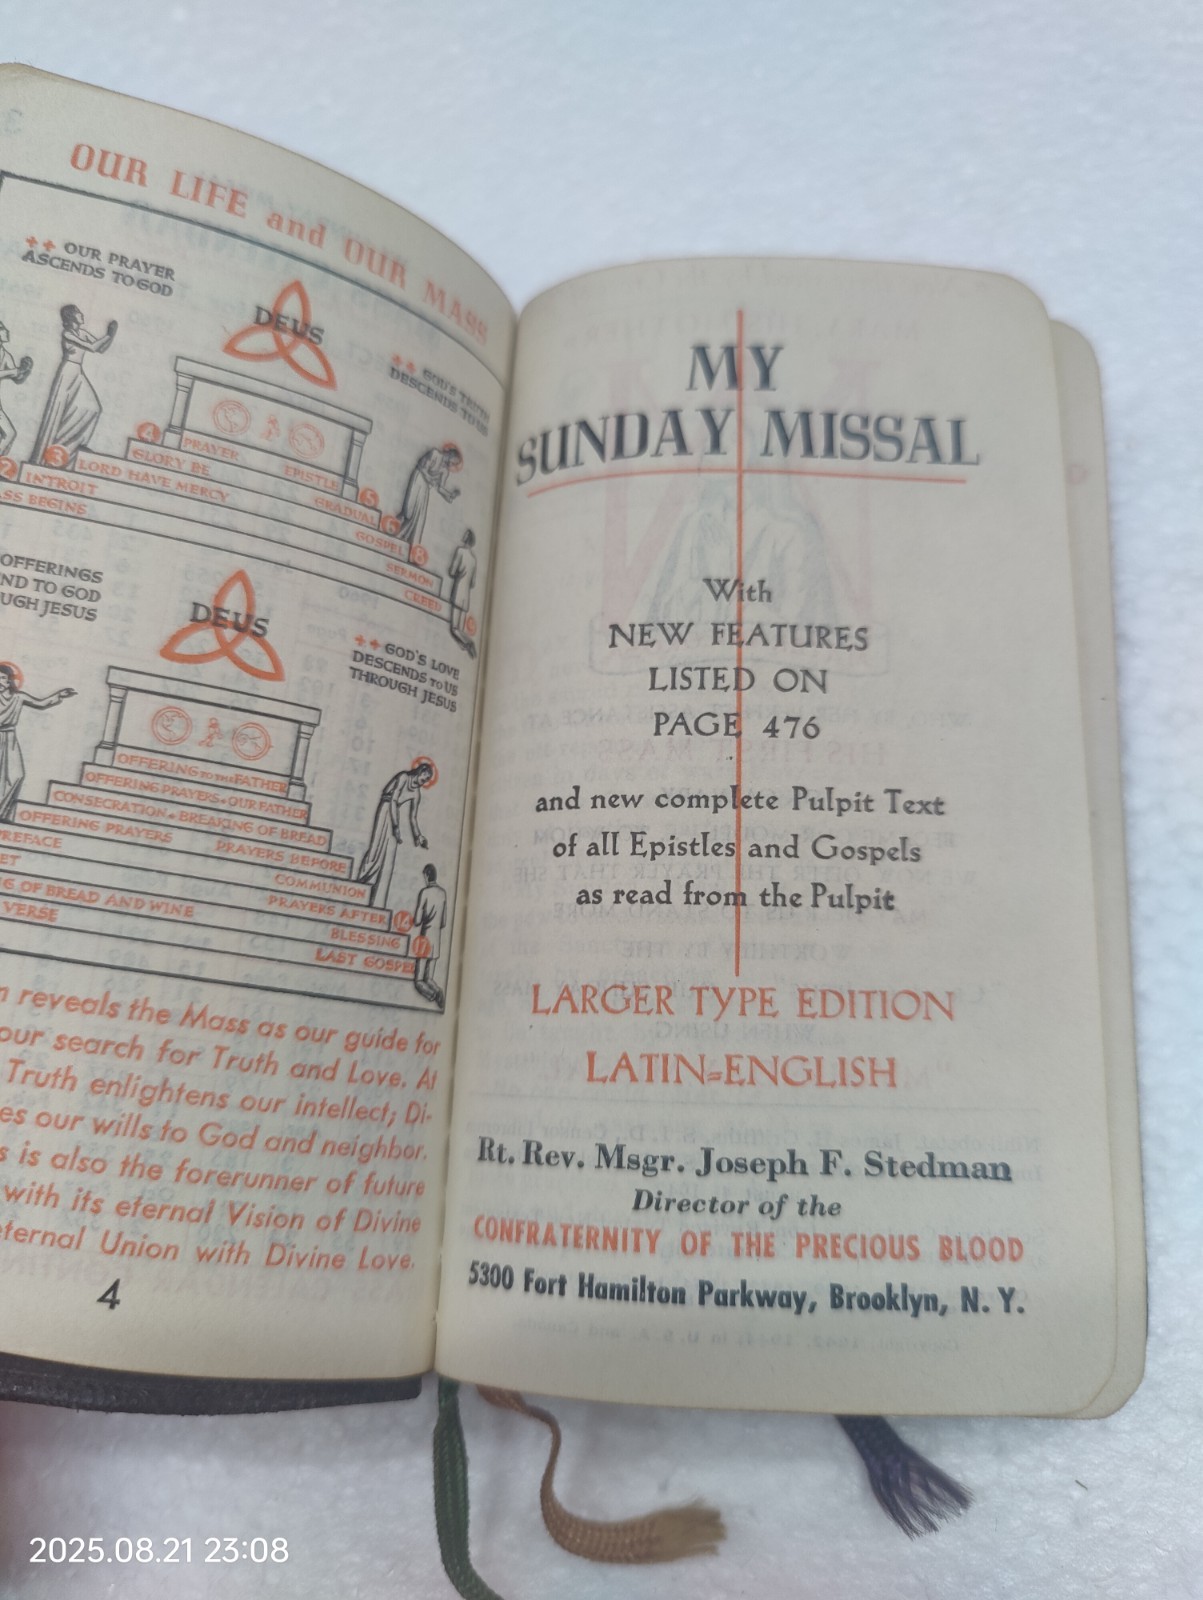 OUR LIFE and OUR MASS
++ OUR PRAYER
ASCENDS TO GOD
DEUS
++ GOD'S TRUTH
DESCENDS TO US
4
PRAYER
EPISTLE
5
GLORY BE
GRADUAL
6
3
LORD HAVE MERCY
GOSPEL
8
2
INTROIT
SERMON
SS BEGINS
CREED
OFFERINGS
ND TO GOD
UGH JESUS
DEUS
++ GOD'S LOVE
DESCENDS TO US
THROUGH JESUS
OFFERING TO THE FATHER
OFFERING PRAYERS • OUR FATHER
CONSECRATION • BREAKING OF BREAD
OFFERING PRAYERS
PRAYERS BEFORE
REFACE
COMMUNION
ET
PRAYERS AFTER
14
G OF BREAD AND WINE
BLESSING
17
VERSE
LAST GOSPEL
n reveals the Mass as our guide for
our search for Truth and Love. At
Truth enlightens our intellect; Di-
es our wills to God and neighbor.
s is also the forerunner of future
with its eternal Vision of Divine
eternal Union with Divine Love.
4
MY
SUNDAY MISSAL
With
NEW FEATURES
LISTED ON
PAGE 476
and new complete Pulpit Text
of all Epistles and Gospels
as read from the Pulpit
LARGER TYPE EDITION
LATIN=ENGLISH
Rt. Rev. Msgr. Joseph F. Stedman
Director of the
CONFRATERNITY OF THE PRECIOUS BLOOD
5300 Fort Hamilton Parkway, Brooklyn, N. Y.
2025.08.21 23:08